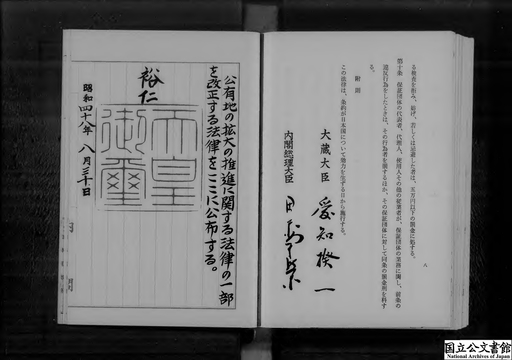 る検査を拒み、妨げ、若しくは忌避した者は、五万円以下の罰金に処する。
第十条　保証団体の代表者、代理人、使用人その他の従業者が、保証団体の業務に関し、前条の
違反行為をしたときは、その行為者を罰するほか、その保証団体に対して同条の罰金刑を科す
る。
附則
この法律は、条約が日本国について効力を生ずる日から施行する。
大蔵大臣　愛知揆一
内閣総理大臣　田中角栄
八
公有地の拡大の推進に関する法律の一部
を改正する法律をここに公布する。
裕仁
天皇
御璽
昭和四十八年　八月三十日
国立公文書館
National Archives of Japan